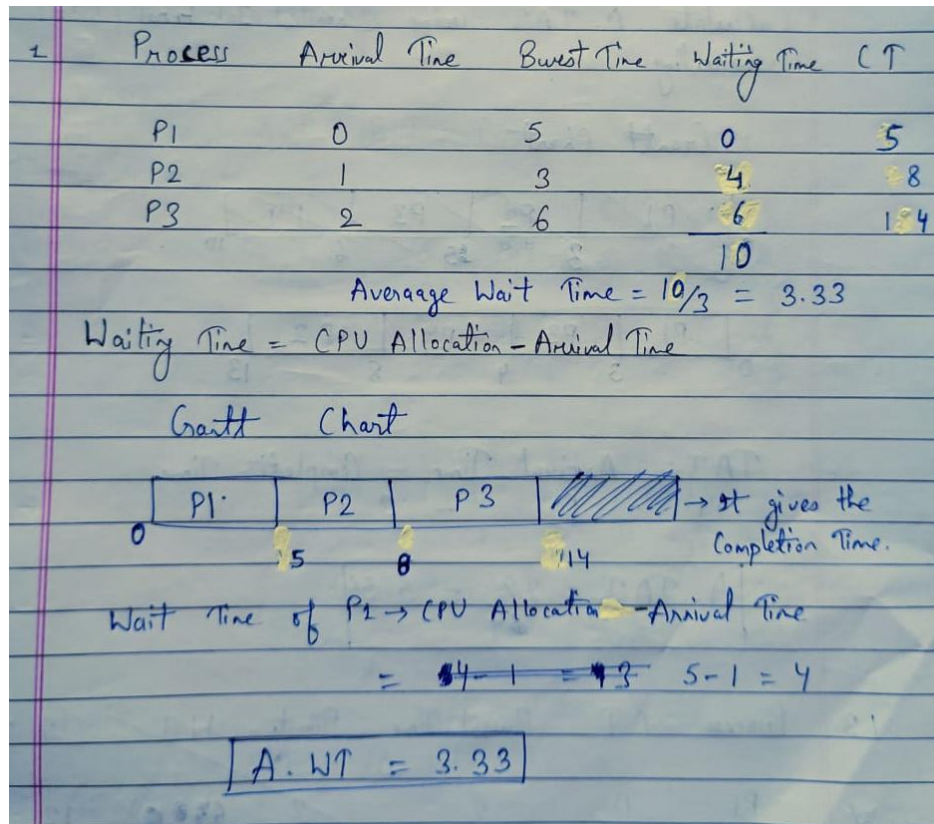 1 Process Arrival Time Burst Time Waiting Time CT
P1 0 5 0 5
P2 1 3 4 8
P3 2 6 6 14
10
Averaage Wait Time = 10/3 = 3.33
Waiting Time = CPU Allocation - Arrival Time
Gantt Chart
P1 P2 P3 → It gives the
0 5 8 14 Completion Time.
Wait Time of P2 → CPU Allocation - Arrival Time
= 4-1 = 3 5-1 = 4
A. WT = 3.33